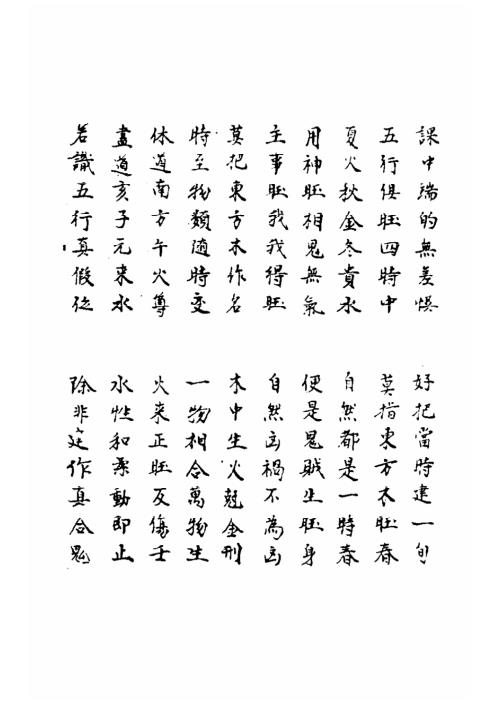 課中端的無差悞
好把當時建一旬
五行俱旺四時中
莫指東方木旺春
夏火秋金冬貴水
自然都是一時春
用神旺相鬼無氣
便是鬼賊生旺身
主事旺我我得旺
自然凶禍不為凶
莫把東方木作名
木中生火剋金刑
時至物類随時变
一物相合萬物生
休道南方午火尊
火来正旺反傷壬
盡道亥子元来水
水性和柔動即止
若識五行真假従
除非作真合鬼